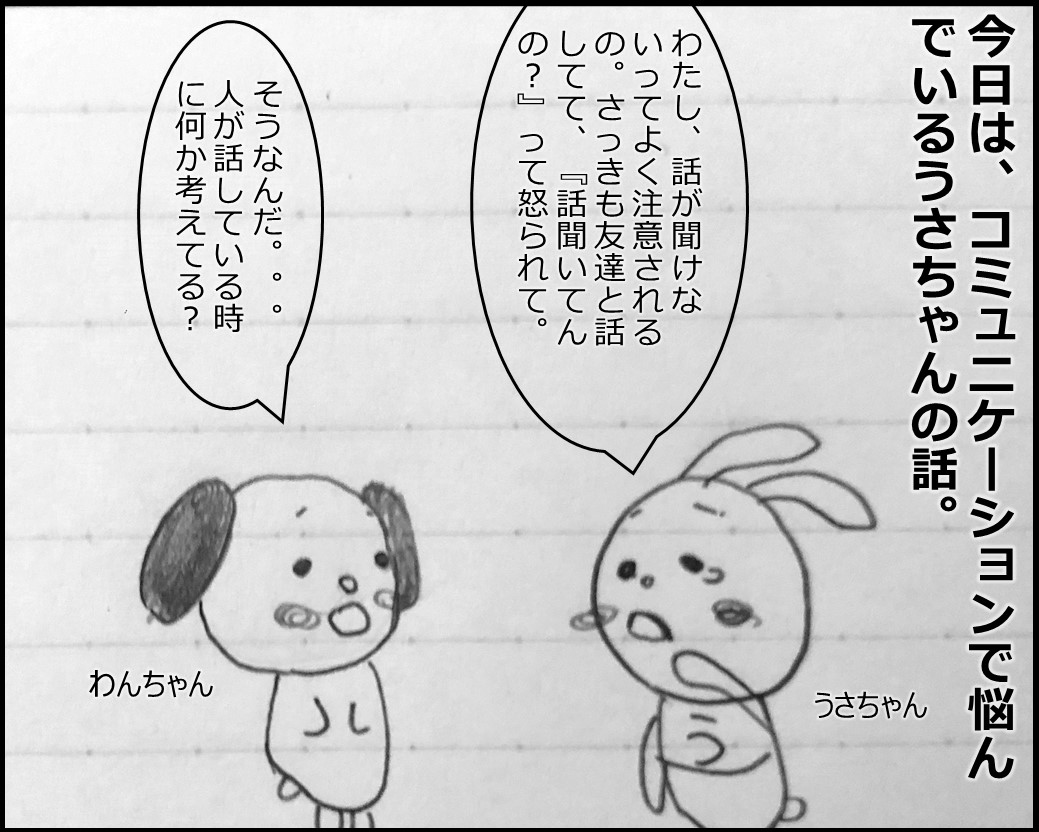 今日は、コミュニケーションで悩ん
でいるうさちゃんの話。
わたし、話が聞けな
いってよく注意される
の。さっきも友達と話
してて、『話聞いてん
の？』って怒られて。
そうなんだ。。。
人が話している時
に何か考えてる？
わんちゃん
うさちゃん